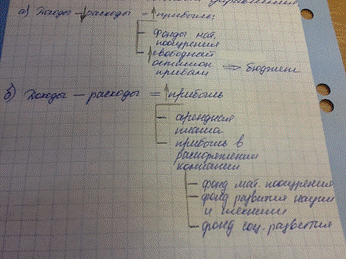 управления
а) Доходы – ↓расходы – ↑прибыль;
Фонды мат. поощрения
↑свободный остаток прибыли ⇒ бюджет
б) Доходы – расходы = ↑прибыль
– арендная плата
– прибыль в распоряжении компании
– фонд мат. поощрения
– фонд развития науки и техники
– фонд соц. развития